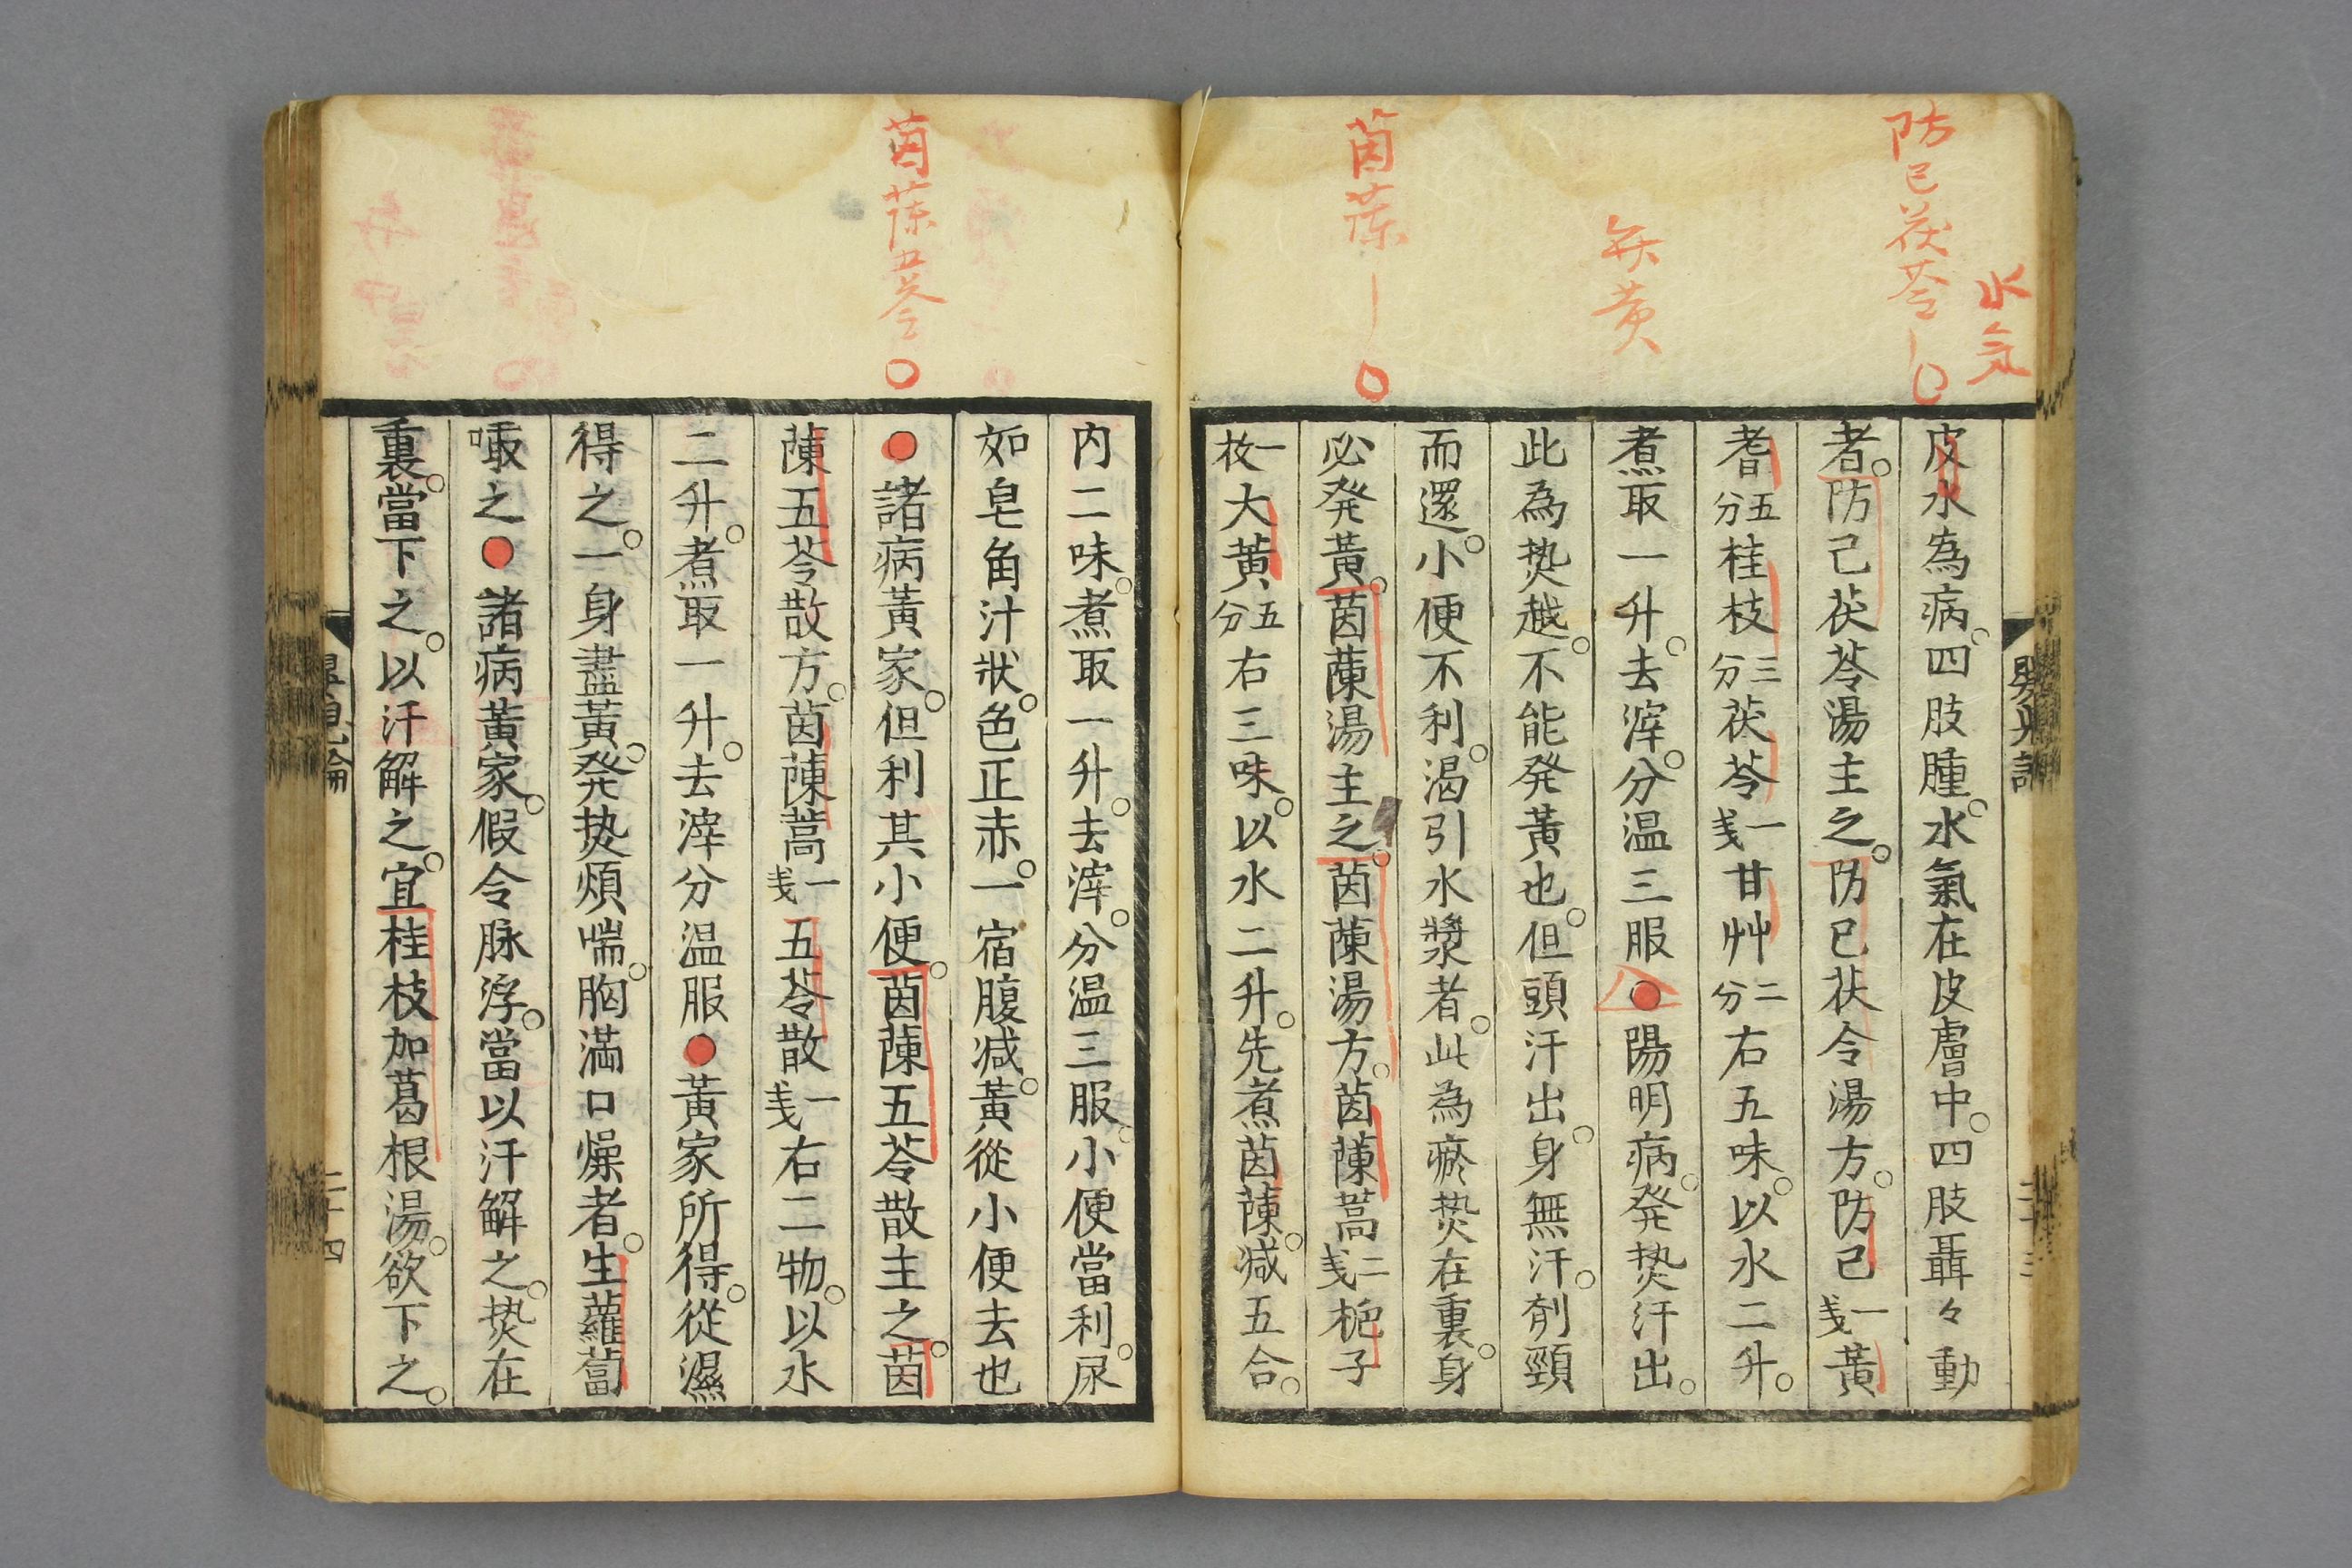 水気
防已茯苓
疾黄
茵蔯
皮水為病。四肢腫。水氣在皮膚中。四肢聶々動
者。防己茯苓湯主之。防已茯令湯方。防己一戔黃
耆五分桂枝三分茯苓一戔甘艸二分右五味。以水二升。
煮取一升。去滓。分温三服●陽明病。発𤍠汗出。
此為𤍠越。不能発黃也。但頭汗出。身無汗。劑頸
而還。小便不利。渴引水漿者。此為瘀𤍠在裏。身
必発黃。茵蔯湯主之。茵蔯湯方。茵蔯蒿二戔梔子
一枚大黃五分右三味。以水二升。先煮茵蔯。減五合。
茵蔯五苓
内二味。煮取一升。去滓。分温三服。小便當利。尿
如皂角汁狀。色正赤。一宿腹減。黃從小便去也
●諸病黃家。但利其小便。茵蔯五苓散主之。茵
蔯五苓散方。茵蔯蒿一戔五苓散一戔右二物。以水
二升。煮取一升。去滓分温服●黃家所得。從濕
得之。一身盡黃。発𤍠煩喘。胸満口燥者。生蘿蔔
㗖之●諸病黃家。假令脉浮。當以汗解之。𤍠在
裏。當下之。以汗解之。宜桂枝加葛根湯。欲下之。
二十四